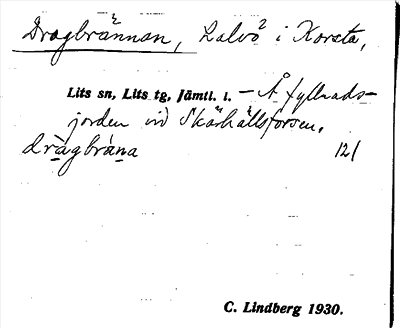 Dragbrännan, Halvö i Korsta,
Lits sn, Lits tg, Jämtl. l. – Å fyllnads-
jorden vid Skärhällsforsen.
dràgbrána 121
C. Lindberg 1930.